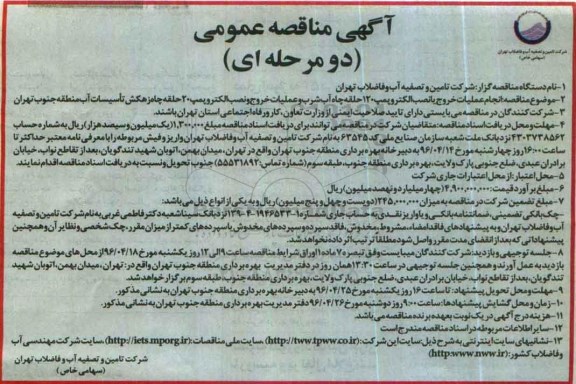 آگهی مناقصه عمومی
(دو مرحله ای)
شرکت تامین و تصفیه آب و فاضلاب تهران
(سهامی خاص)
۱- نام دستگاه مناقصه گزار: شرکت تامین و تصفیه آب و فاضلاب تهران
۲- موضوع مناقصه: انجام عملیات خروج یا نصب الکتروپمپ ۱۲۰ حلقه چاه آب شرب و عملیات خروج و نصب الکتروپمپ ۲۰ حلقه چاه زهکش تأسیسات آب منطقه جنوب تهران
۳- شرکت کنندگان در مناقصه می بایستی دارای تایید صلاحیت ایمنی از وزارت تعاون، کار و رفاه اجتماعی استان تهران باشند.
۴- مهلت و محل دریافت اسناد مناقصه: متقاضیان شرکت در مناقصه می توانند برای دریافت اسناد مناقصه مبلغ ۱,۳۰۰,۰۰۰ (یک میلیون و سیصد هزار) ریال به شماره حساب
۴۳۰۳۷۳۸۵۶۲ نزد بانک ملت شعبه سازمان صنایع ملی کد ۶۲۵۶۵ به نام شرکت تامین و تصفیه آب و فاضلاب تهران واریز و فیش مربوطه را با معرفی نامه معتبر حداکثر تا
ساعت ۱۶:۰۰ روز چهارشنبه مورخ ۹۶/۰۴/۱۴ به دبیرخانه بهره برداری منطقه جنوب تهران واقع در تهران، میدان بهمن، اتوبان شهید تندگویان، بعد از تقاطع نواب، خیابان
برادران عبدی، ضلع جنوبی پارک ولایت، بهره برداری منطقه جنوب، طبقه سوم (شماره تماس: ۵۵۵۳۱۸۹۲) جنوب تحویل و نسبت به دریافت اسناد مناقصه اقدام نمایند.
۵- محل اعتبار: از محل اعتبارات جاری شرکت
۶- مبلغ برآورد قیمت: ۴,۹۰۰,۰۰۰,۰۰۰ (چهار میلیارد و نهصد میلیون) ریال
۷- مبلغ تضمین شرکت در مناقصه به میزان ۲۴۵,۰۰۰,۰۰۰ (دویست و چهل و پنج میلیون) ریال و به یکی از انواع ذیل می باشد:
- چک بانکی تضمینی، ضمانتنامه بانکی و یا واریز نقدی، به حساب جاری شماره نزد بانک سینا شعبه دکتر فاطمی غربی به نام شرکت تامین و تصفیه
آب و فاضلاب تهران و به پیشنهادهای فاقد امضاء، مشروط، مخدوش، فاقد سپرده و سپرده های مخدوش یا سپرده های کمتر از میزان مقرر، چک شخصی و نظایر آن و همچنین
پیشنهاداتی که بعد از انقضای مدت مقرر واصل شود مطلقا ترتیب اثر داده نخواهد شد.
۸- جلسه توجیهی و بازدید: شرکت کنندگان میبایست وفق تبصره ۷ ماده ۱ اوراق شرایط مناقصه ساعت ۹ الی ۱۳ روز یکشنبه مورخ ۹۶/۰۴/۱۸ از محل های موضوع مناقصه
بازدید به عمل آورند و همچنین جلسه توجیهی در ساعت ۱۳:۳۰ همان روز در دفتر مدیریت بهره برداری منطقه جنوب تهران واقع در: تهران، میدان بهمن، اتوبان شهید
تندگویان، بعد از تقاطع نواب، خیابان برادران عبدی، ضلع جنوبی پارک ولایت، بهره برداری منطقه جنوب، طبقه سوم برگزار خواهد شد.
۹- مهلت و محل تحویل پیشنهاد: تا ساعت ۱۶ روز یکشنبه مورخ ۹۶/۰۴/۲۵ به دبیرخانه بهره برداری منطقه جنوب تهران به نشانی مذکور.
۱۰- زمان و محل گشایش پیشنهادها: ساعت ۹:۰۰ روز دوشنبه مورخ ۹۶/۰۴/۲۶ دفتر مدیریت بهره برداری منطقه جنوب تهران به نشانی مذکور.
۱۱- هزینه درج آگهی در یک نوبت به عهده برنده مناقصه می باشد.
۱۲- سایر اطلاعات مربوطه در اسناد مناقصه مندرج است
۱۳- نشانیهای سایت اینترنتی به شرح ذیل: سایت این شرکت: (http://tww.tpww.co.ir)، سایت ملی مناقصات: (http://iets.mporg.ir) سایت شرکت مهندسی آب
و فاضلاب کشور: (http:www.nww.ir)
شرکت تامین و تصفیه آب و فاضلاب تهران
(سهامی خاص)